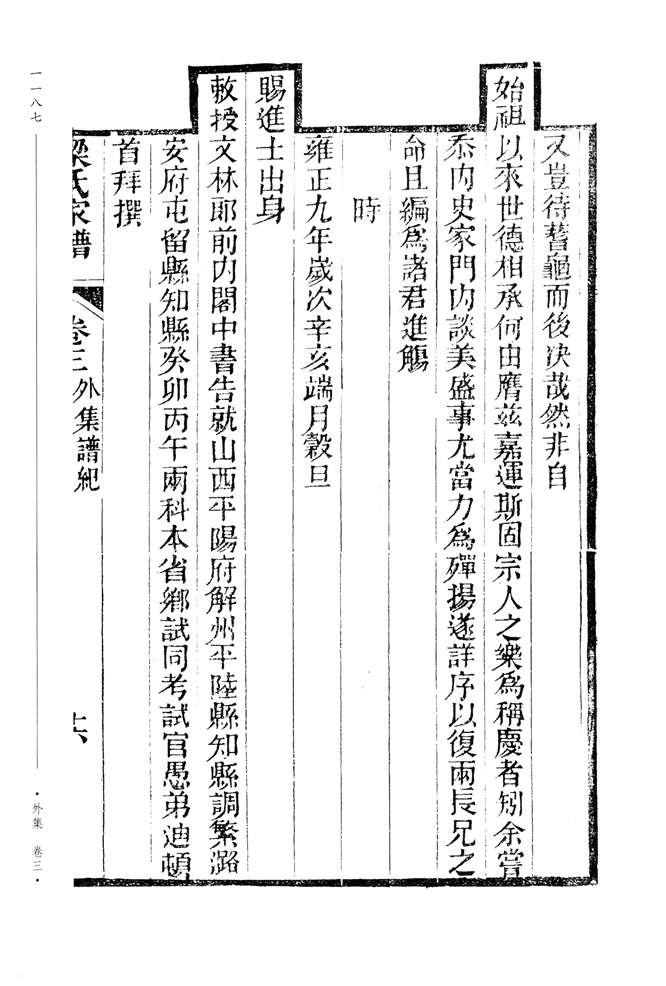 又豈待蓍龜而後决哉然非自
始祖以來世德相承何由膺兹嘉運斯固宗人之樂爲稱慶者矧余嘗
忝内史家門内談美盛事尤當力爲殫揚遂詳序以復兩長兄之
命且編爲諸君進觴
時
雍正九年歲次辛亥端月穀旦
賜進士出身
敕授文林郎前内閣中書告就山西平陽府解州平陸縣知縣調繁潞
安府屯留縣知縣癸卯丙午兩科本省鄉試同考試官愚弟迪頓
首拜撰
梁氏家譜 卷三 外集譜紀 十六
一一八七
·外集 卷三·